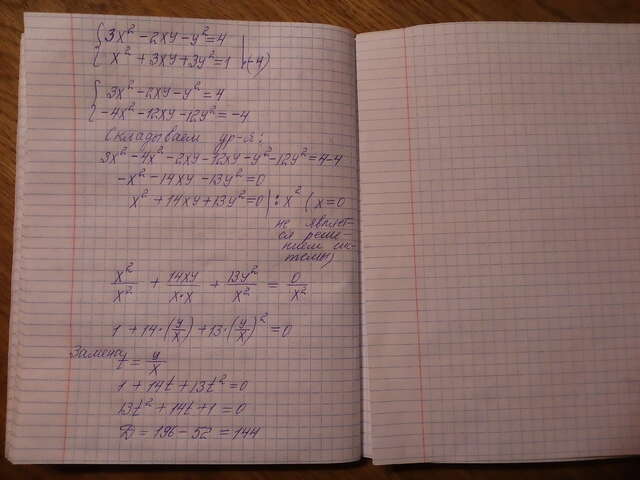 3x² - 2xy - y² = 4
x² + 3xy + 3y² = 1 |·(-4)
3x² - 2xy - y² = 4
-4x² - 12xy - 12y² = -4
Складываем ур-я:
3x² - 4x² - 2xy - 12xy - y² - 12y² = 4-4
-x² - 14xy - 13y² = 0
x² + 14xy + 13y² = 0 | : x² (x=0
не являет-
ся реше-
нием сис-
темы)
x²/x² + 14xy/x·x + 13y²/x² = 0/x²
1 + 14·(y/x) + 13·(y/x)² = 0
Замена
t = y/x
1 + 14t + 13t² = 0
13t² + 14t + 1 = 0
D = 196 - 52 = 144